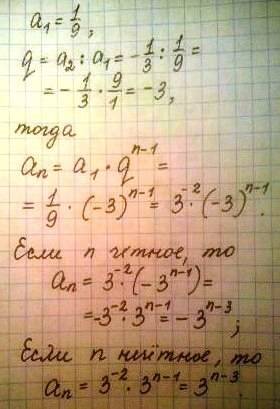 a₁ = 1/9,
q = a₂ : a₁ = -1/3 : 1/9 =
= -1/3 · 9/1 = -3,
тогда
aₙ = a₁ · qⁿ⁻¹ =
= 1/9 · (-3)ⁿ⁻¹ = 3⁻² · (-3)ⁿ⁻¹.
Если n чётное, то
aₙ = 3⁻² · (-3ⁿ⁻¹) =
= -3⁻² · 3ⁿ⁻¹ = -3ⁿ⁻³;
Если n нечётное, то
aₙ = 3⁻² · 3ⁿ⁻¹ = 3ⁿ⁻³.